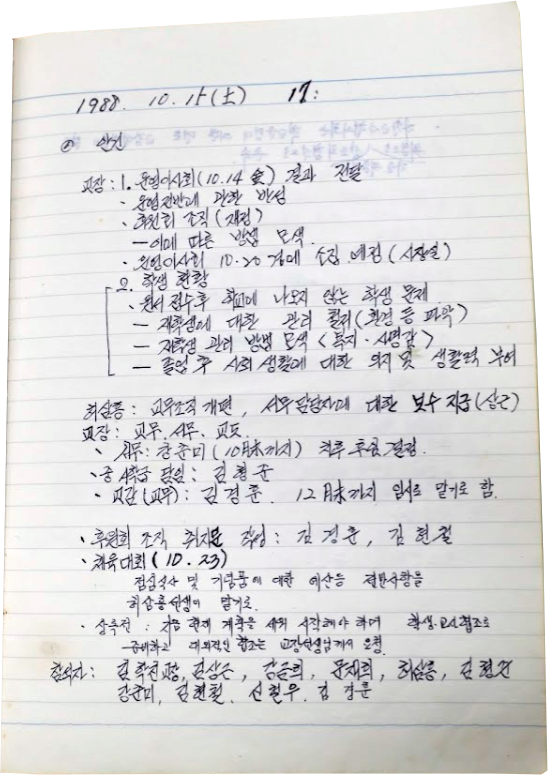 1988. 10. 15(土) 17:
◎ 안건
교장: 1. 운영이사회(10.14 金) 결과 전달
· 운영전반에 관한 반성
· 후원회 조직(재정)
- 이에 따른 방법 모색.
· 운영이사회 10.20경에 소집 예정(시장실)
2. 학생 현황
· 원서접수후 학교에 나오지 않는 학생 문제
- 재학생에 대한 관리 철저(환경 등 파악)
- 재학생 관리 방법 모색 <독지·사명감>
- 졸업 후 사회 생활에 대한 의지 및 생활력 부여
허삼룡: 교무조직개편, 서무담당자에 대한 보수 지급(상근)
교장: 교무. 서무. 교도
· 서무: 강준미(10月末까지) 차후 후임 결정.
· 중 1학급 담임: 김형균
· 교감(교무): 김경훈. 12月末까지 임시로 맡기로 함.
· 후원회 조직 취지문 작성: 김경훈, 김현철
· 체육대회(10. 23)
점심식사 및 기념품에 대한 예산등 제반사항을
허삼룡선생이 맡기로.
· 상록전: 지금 현재 계획을 세워 시작해야 하며 학생·교사 협조로
준비하고 대외적인 협조는 교장선생님께서 요청.
참석자: 김학진교장, 김상은, 김근희, 문재희, 허삼룡, 김형균
강준미, 김현철, 신철우, 김경훈